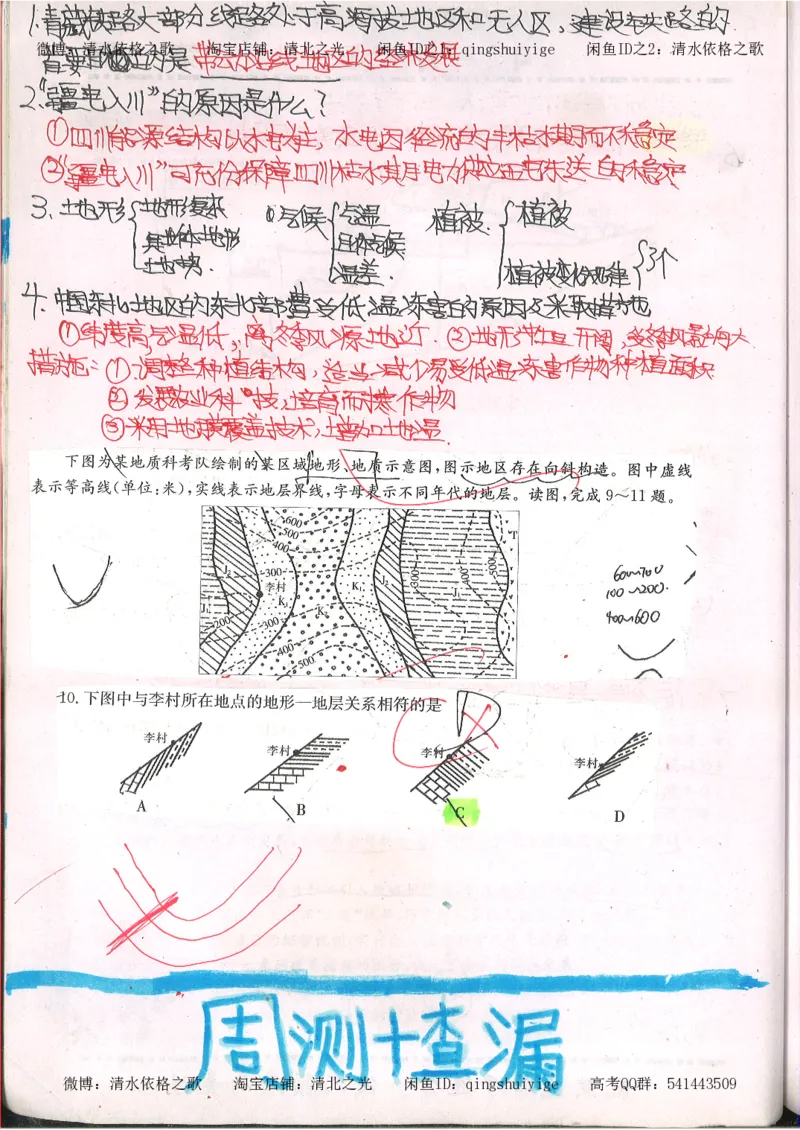 1.青藏铁路大部分线路处于高海拔地区和无人区，建设铁路的
首要目的是带动沿线地区的经济发展
微博：清水依格之歌 淘宝店铺：清北之光 闲鱼ID之1：qingshuiyige 闲鱼ID之2：清水依格之歌
2."疆电入川"的原因是什么？
①四川能源结构以水电为主，水电因径流的丰枯水期而不稳定
②"疆电入川"可充份保障四川枯水期电力供应
3.土地形 地形复杂 气候 气温 植被 植被
具体地形 植被变化规律 3个
地势 温差
4.中国东北地区的东北部遭受低温冻害的原因及采取措施
①纬度高气温低，离冬季风源地近.②地形平坦开阔，受冬季风影响大
措施：①调整种植结构，适当减少易受低温冻害作物种植面积
②发展农业科技，培育耐寒作物
③采用地膜覆盖技术，增加土地温
下图为某地质科考队绘制的某区域地形、地质示意图，图示地区存在向斜构造。图中虚线
表示等高线(单位：米)，实线表示地层界线，字母表示不同年代的地层。读图，完成9～11题。
600
500
400
300
李村
J₂
K₁
K₂
K₁
J₂
J₁
T
J₁
200
300
400
500
300
400
500
600~700
100~200.
400~600
10.下图中与李村所在地点的地形—地层关系相符的是
李村 李村 李村 李村
A B C D
周测十查漏
微博：清水依格之歌 淘宝店铺：清北之光 闲鱼ID：qingshuiyige 高考QQ群：541443509